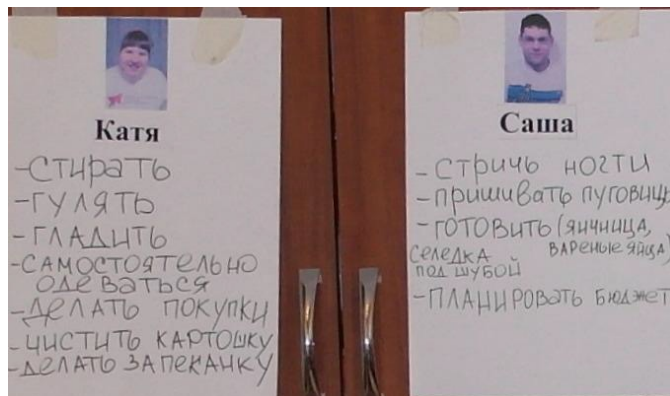 Катя
-СТИРАТЬ
-ГУЛЯТЬ
-ГЛАДИТЬ
-САМОСТОЯТЕЛЬНО
ОДЕВАТЬСЯ
-ДЕЛАТЬ ПОКУПКИ
-ЧИСТИТЬ КАРТОШКУ
-ДЕЛАТЬ ЗАПЕКАНКУ
Саша
-СТРИЧЬ НОГТИ
-ПРИШИВАТЬ ПУГОВИЦЫ
-ГОТОВИТЬ (ЯИЧНИЦА,
СЕЛЕДКА ВАРЕНЫЕ ЯЙЦА)
ПОД ШУБОЙ
-ПЛАНИРОВАТЬ БЮДЖЕТ